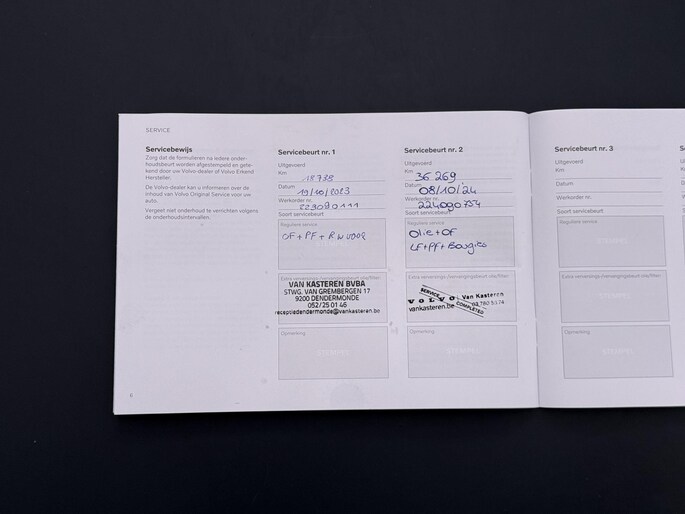 SERVICE
Servicebewijs
Zorg dat de formulieren na iedere onder-
houdsbeurt worden afgestempeld en gete-
kend door uw Volvo-dealer of Volvo Erkend
Hersteller.
De Volvo-dealer kan u informeren over de
inhoud van Volvo Original Service voor uw
auto.
Vergeet niet onderhoud te verrichten volgens
de onderhoudsintervallen.
6
Servicebeurt nr. 1
Uitgevoerd
Km 18738
Datum 19/10/2023
Werkorder nr.
Soort servicebeurt
Reguliere service
OF+PF+RW VOOR
VAN KASTEREN BVBA
STWG. VAN GREMBERGEN 17
9200 DENDERMONDE
052/25 01 46
receptiedendermonde@vankasteren.be
Opmerking
STEMPEL
Servicebeurt nr. 2
Uitgevoerd
Km 36 269
Datum 08/10/24
Werkorder nr. 224090754
Soort servicebeurt
Reguliere service
Olie+OF
LF+PF+Bougies
SERVICE
VOLVO Van Kasteren
vankasteren.be 03 780 51 74
COMPLETED
Opmerking
STEMPEL
Servicebeurt nr. 3
Uitgevoerd
Km
Datum
Werkorder nr.
Soort servicebeurt
Reguliere service
STEMPEL
STEMPEL
Opmerking
STEMPEL